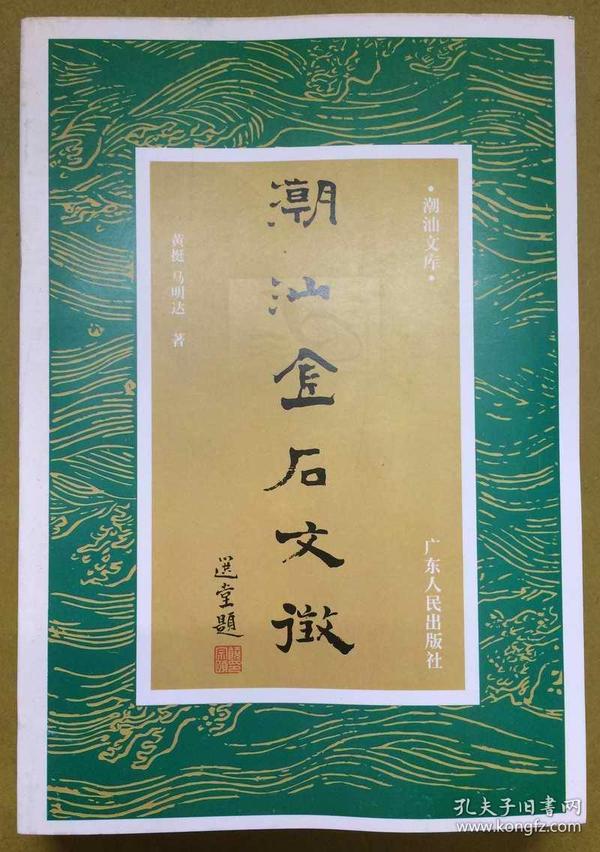 ·潮汕文库·
潮汕金石文徵
黄挺 马明达 著
選堂題
广东人民出版社
孔夫子旧書网
www.kongfz.com